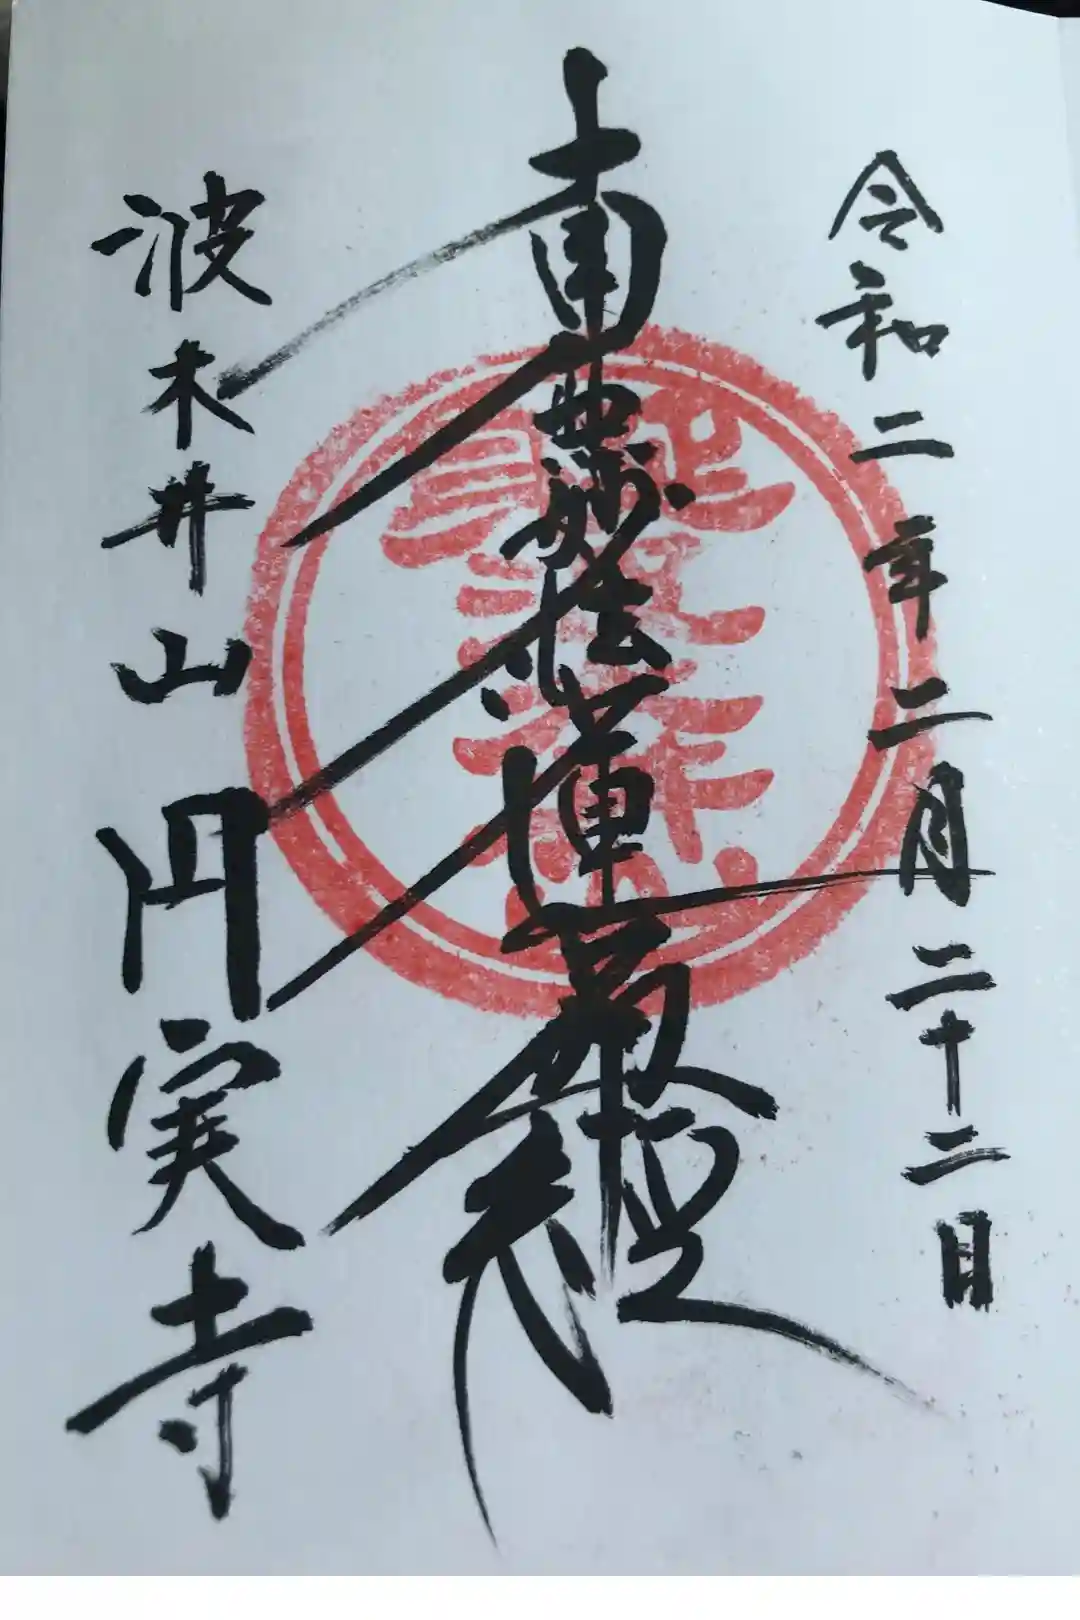 令和二年二月二十二日
南無妙法蓮華経
波木井山円実寺